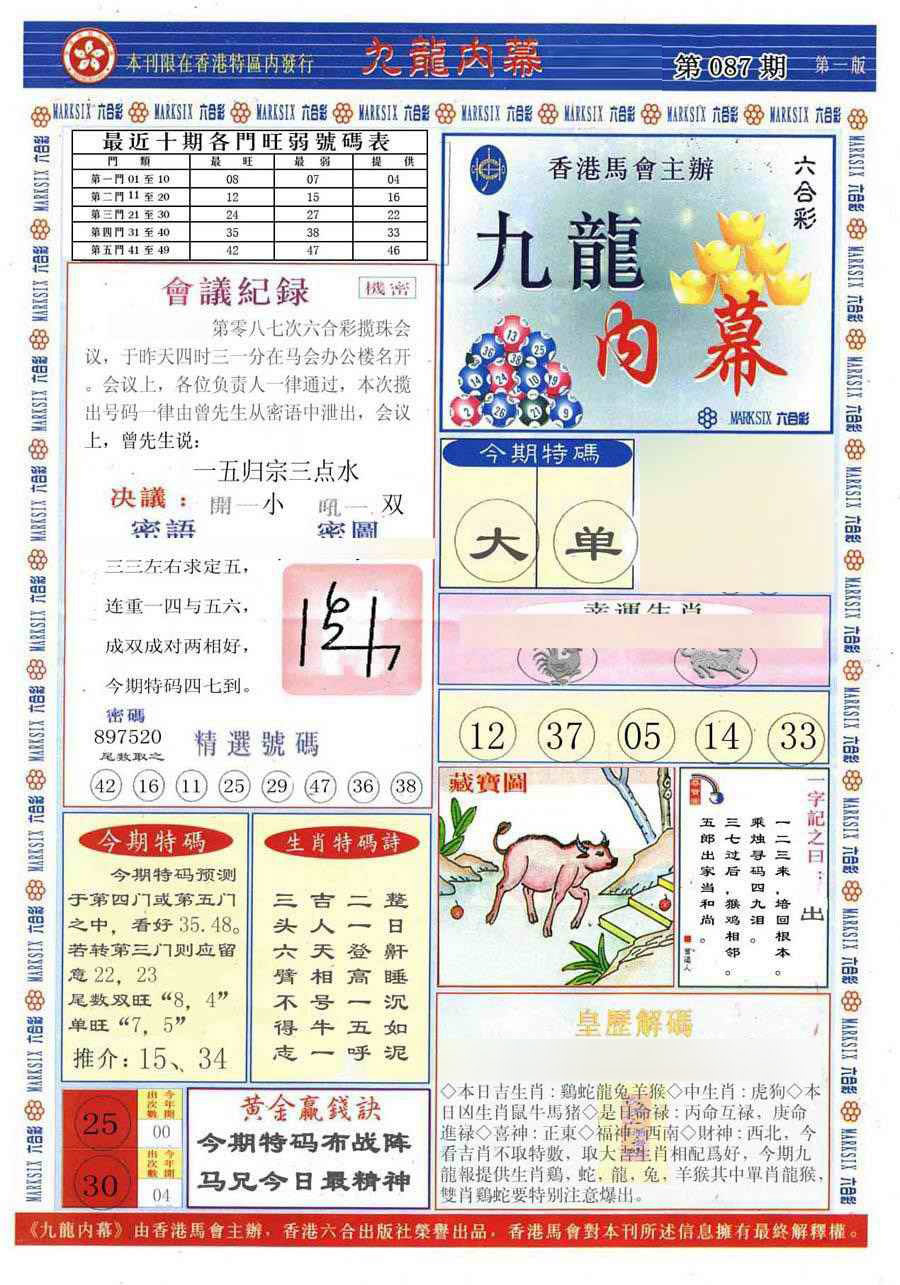 本刊限在香港特區内發行
九龍内幕
第 087 期
第一版
MARKSIX 六合彩 MARKSIX 六合彩 MARKSIX 六合彩 MARKSIX 六合彩 MARKSIX 六合彩 MARKSIX 六合彩 MARKSIX 六合彩 MARKSIX 六合彩
最近十期各門旺弱號碼表
門 類 最 旺 最 弱 提 供
第一門 01 至 10 08 07 04
第二門 11 至 20 12 15 16
第三門 21 至 30 24 27 22
第四門 31 至 40 35 38 33
第五門 41 至 49 42 47 46
會議紀録 機密
第零八七次六合彩揽珠会
议，于昨天四时三一分在马会办公楼名开
。会议上，各位负责人一律通过，本次揽
出号码一律由曾先生从密语中泄出，会议
上，曾先生说：
一五归宗三点水
决議： 開一小 吼一 双
密語 密圖
三三左右求定五，
连重一四与五六，
成双成对两相好，
今期特码四七到。
密碼
897520
尾数取之
精選號碼
42 16 11 25 29 47 36 38
香港馬會主辦
六合彩
九龍
内幕
13
36 38 25
14 24 10 19
2 26 21 9
MARKSIX 六合彩
今期特碼
大 单
幸運生肖
12 37 05 14 33
藏寶圖
一字記之曰：出
一二三来，培回根本。
乘烛寻码四九泪。
三七过后，猴鸡相邻。
五郎出家当和尚。
曾道人
今期特碼
今期特码预测
于第四门或第五门
之中，看好 35.48。
若转第三门则应留
意 22，23
尾数双旺“8，4”
单旺“7，5”
推介：15、34
生肖特碼詩
三吉二整
头人一日
六天登鼾
臂相高睡
不号一沉
得牛五如
志一呼泥
皇歷解碼
◇本日吉生肖：鷄蛇龍兔羊猴◇中生肖：虎狗◇本
日凶生肖鼠牛馬豬◇是日命禄：丙命互禄，庚命
進禄◇喜神：正東◇福神：西南◇財神：西北，今
看吉肖不取特數，取大吉生肖相配爲好，今期九
龍報提供生肖鷄，蛇，龍，兔，羊猴其中單肖龍猴，
雙肖鷄蛇要特别注意爆出。
25 今年開出次數 00
30 今年開出次數 04
黄金赢錢訣
今期特码布战阵
马兄今日最精神
《九龍内幕》由香港馬會主辦，香港六合出版社榮譽出品，香港馬會對本刊所述信息擁有最終解釋權。